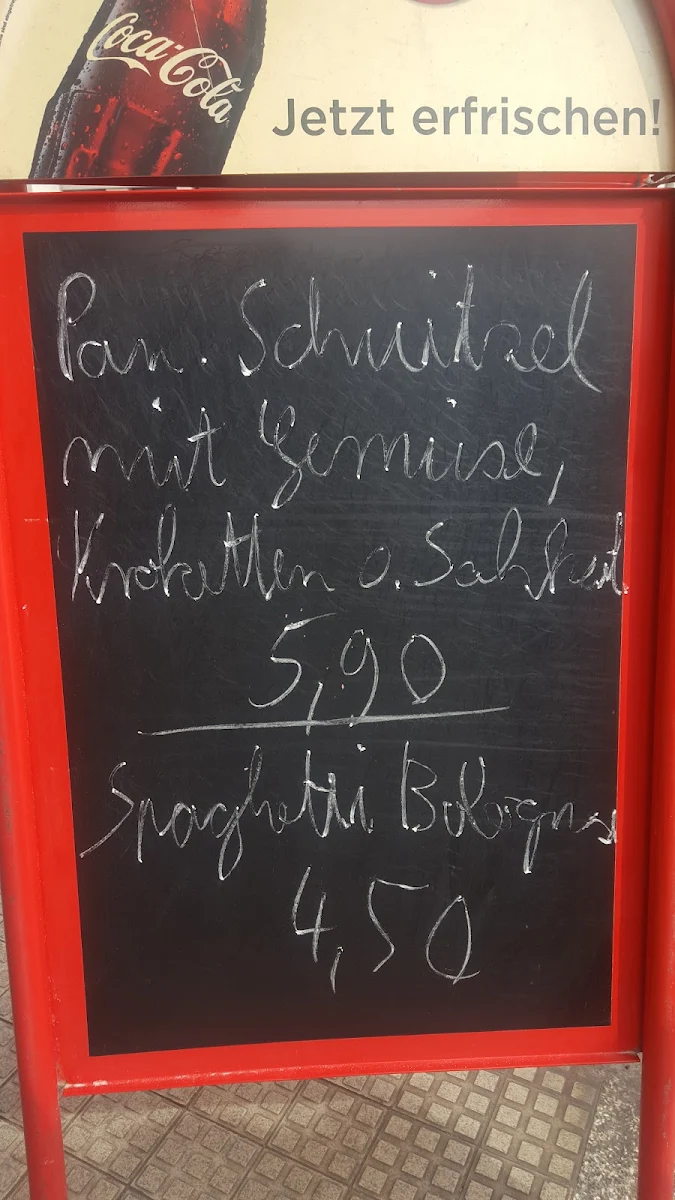 Coca-Cola
Jetzt erfrischen!
Pan. Schnitzel
mit Gemüse,
Kroketten o. Salzkart
5,90
Spaghetti Bologns
4,50